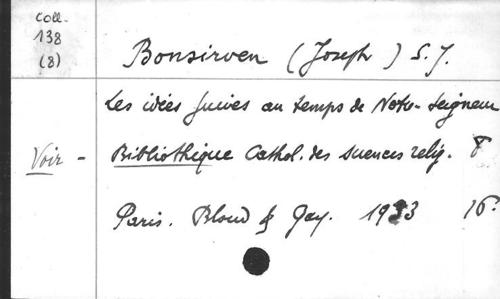 Coll.
138
(8)
Bonsirven (Joseph) S.J.
Les idées juives au temps de Notre-Seigneur
Voir - Bibliothique Cathol. des sciences relig. 8
Paris. Bloud & Gay. 1933 16°